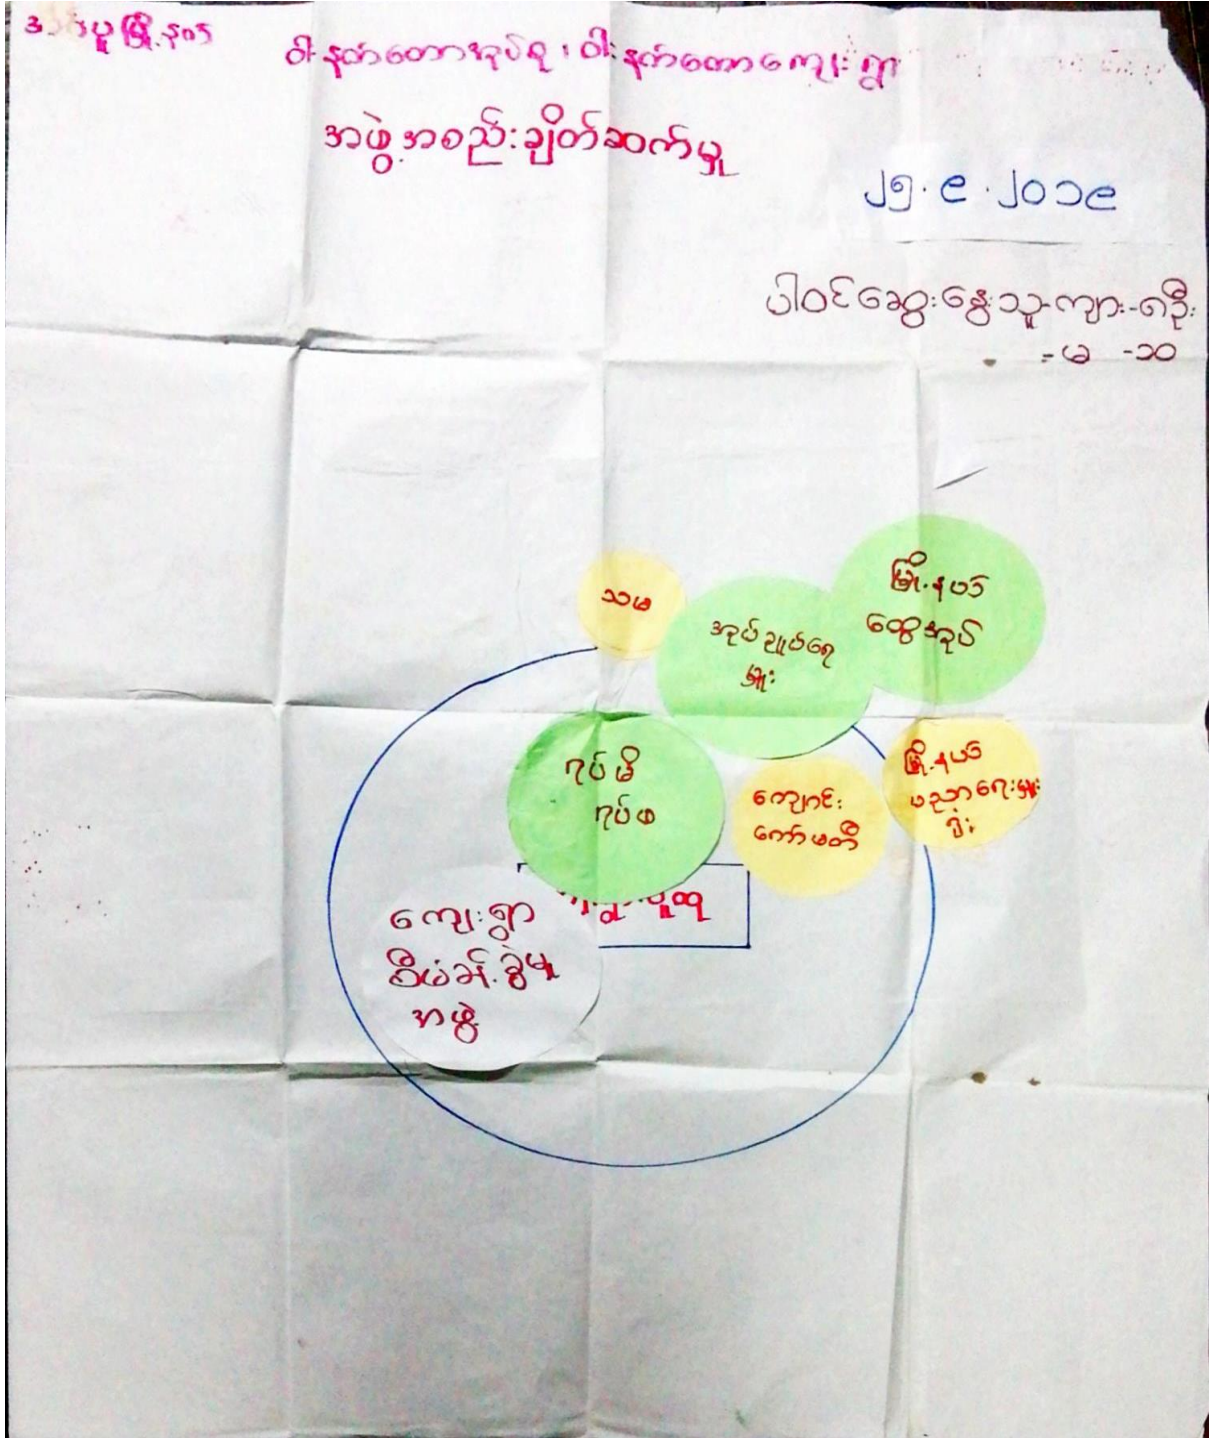 မြို့နယ်
ဝါးနက်တောအုပ်စု၊ ဝါးနက်တောကျေးရွာ
အဖွဲ့အစည်းချိတ်ဆက်မှု
၂၅.၉.၂၀၁၉
ပါဝင်ဆွေးနွေးသူ-ကျား-၈ဦး
-မ -၁၀
သမ
အုပ်ချုပ်ရေ
မှူး
မြို့နယ်
ထွေအုပ်
ရပ်မိ
ရပ်ဖ
ကျောင်း
ကော်မတီ
မြို့နယ်
ပညာရေးမှူး
ရုံး
ကျေးရွာ
စီမံခန့်ခွဲမှု
အဖွဲ့